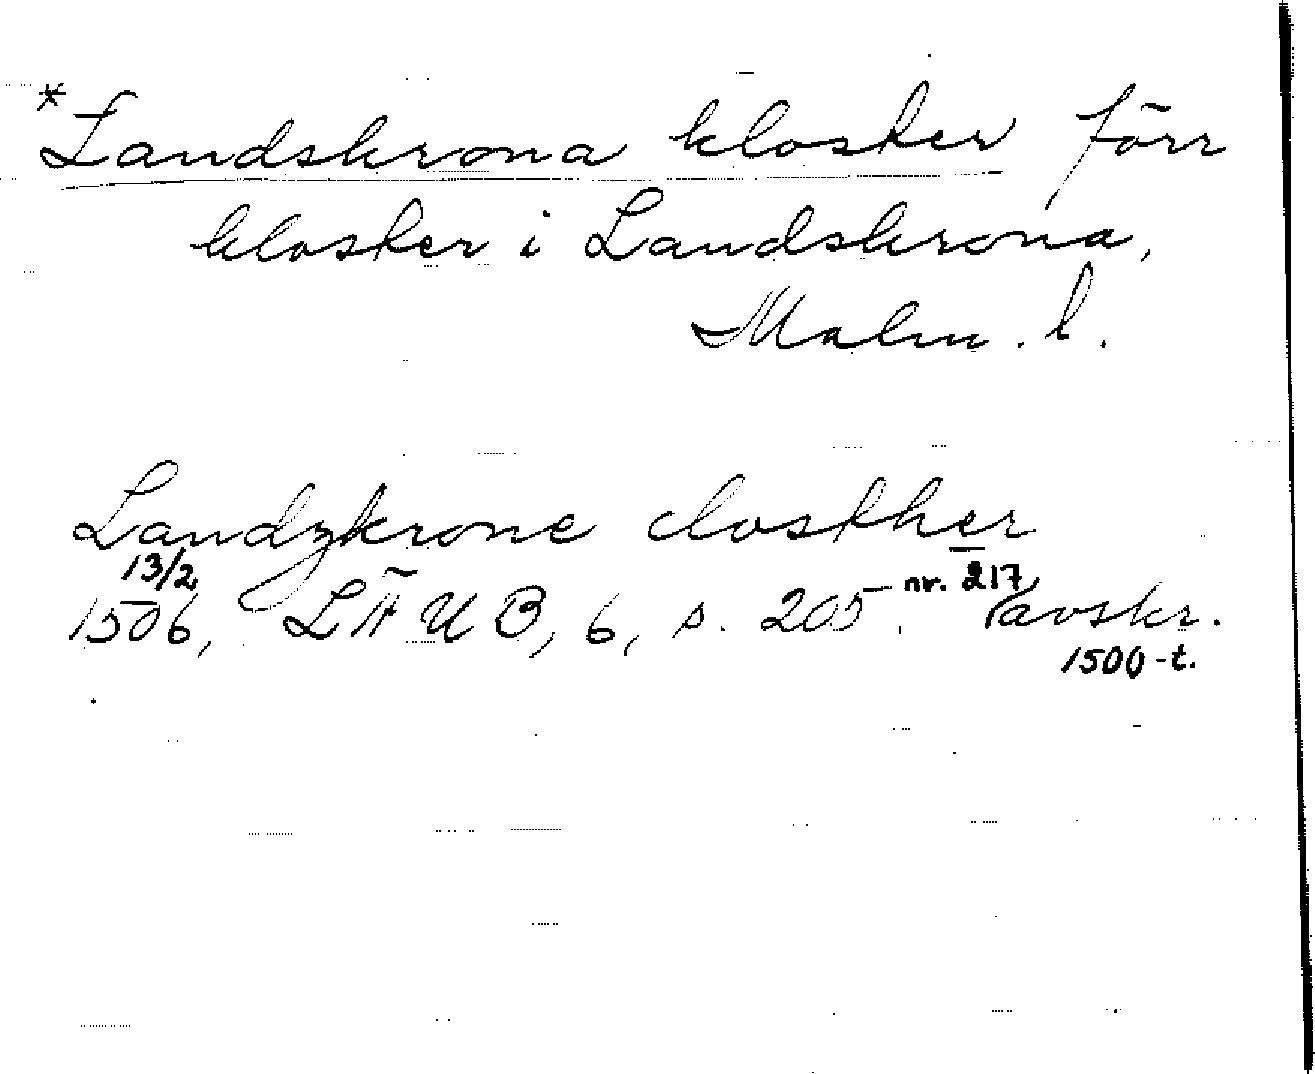 *Landskrona kloster förr
kloster i Landskrona,
Malm. l.
Landzkrone closther
13/2 1506, LÄUB, 6, s. 205 nr. 217 avskr.
1500-t.